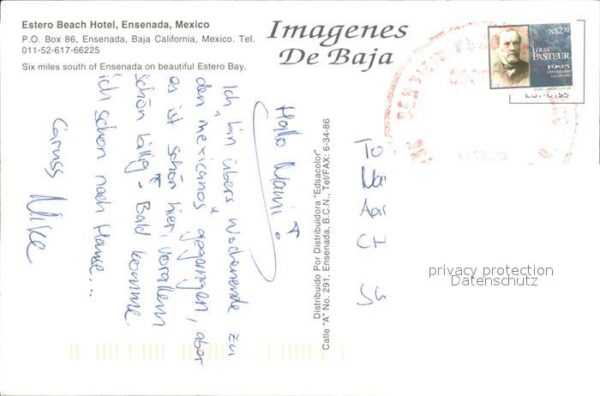 Estero Beach Hotel, Ensenada, Mexico
P.O. Box 86, Ensenada, Baja California, Mexico. Tel.
011-52-617-66225
Six miles south of Ensenada on beautiful Estero Bay.
Imagenes
De Baja
N$2.70
LOUIS
PASTEUR
1995
Hallo Mami!
Ich bin übers Wochenende zu
den mexicanos gegangen, aber
es ist schön hier, vorallem
schön billig - Bald komme
ich schon nach Hause...
Mike
Distribuido Por Distribuidora "Edsacolor"
Calle "A" No. 291, Ensenada, B.C.N., Tel/FAX: 6-34-86
To
Aar
CH
privacy protection
Datenschutz